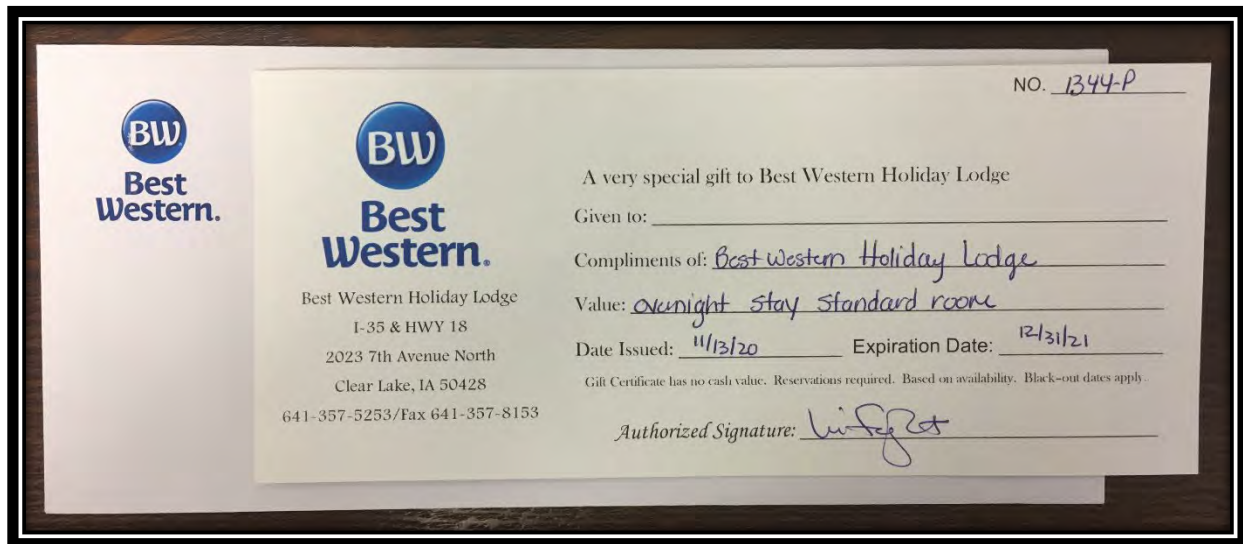 BW
Best
Western.
BW
Best
Western.
Best Western Holiday Lodge
I-35 & HWY 18
2023 7th Avenue North
Clear Lake, IA 50428
641-357-5253/Fax 641-357-8153
NO. 1344-P
A very special gift to Best Western Holiday Lodge
Given to:
Compliments of: Best Western Holiday Lodge
Value: overnight stay standard room
Date Issued: 11/13/20 Expiration Date: 12/31/21
Gift Certificate has no cash value. Reservations required. Based on availability. Black-out dates apply.
Authorized Signature: